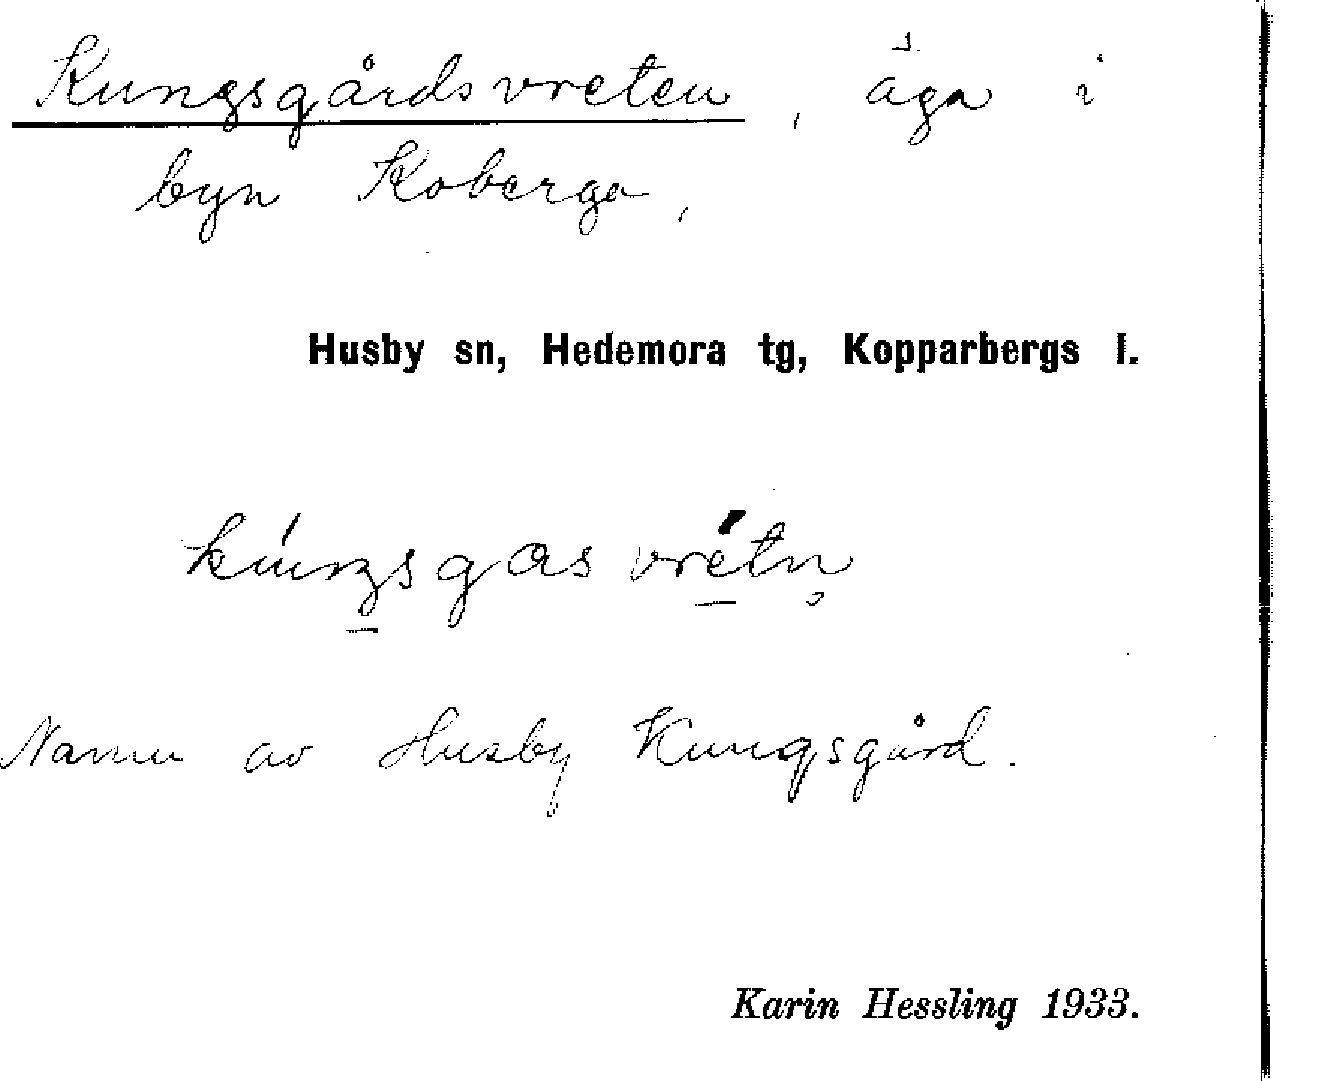 Kungsgårdsvreten, äga i
byn Koberga,
Husby sn, Hedemora tg, Kopparbergs l.
kúŋsgasvrétn̥
Namn av Husby Kungsgård.
Karin Hessling 1933.